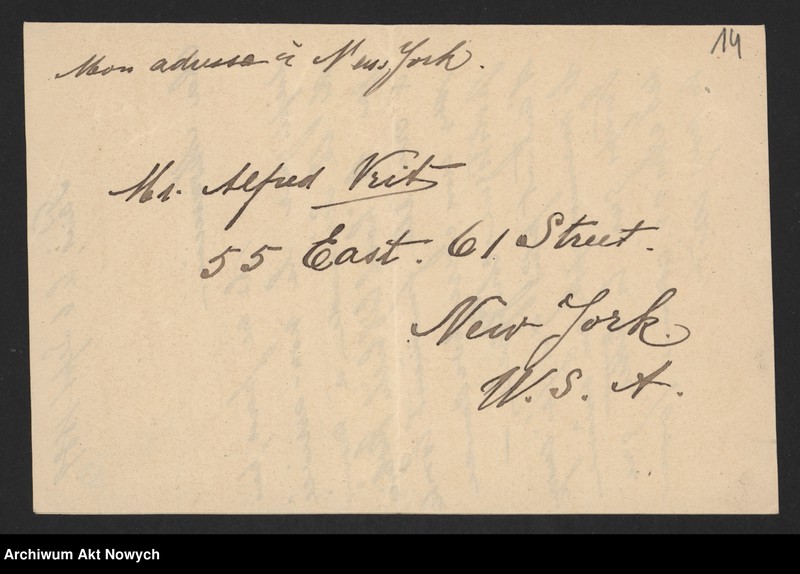 14
Mon adresse à New York.
Mr. Alfred Veit
55 East. 61 Street.
New York.
U.S.A.
Archiwum Akt Nowych